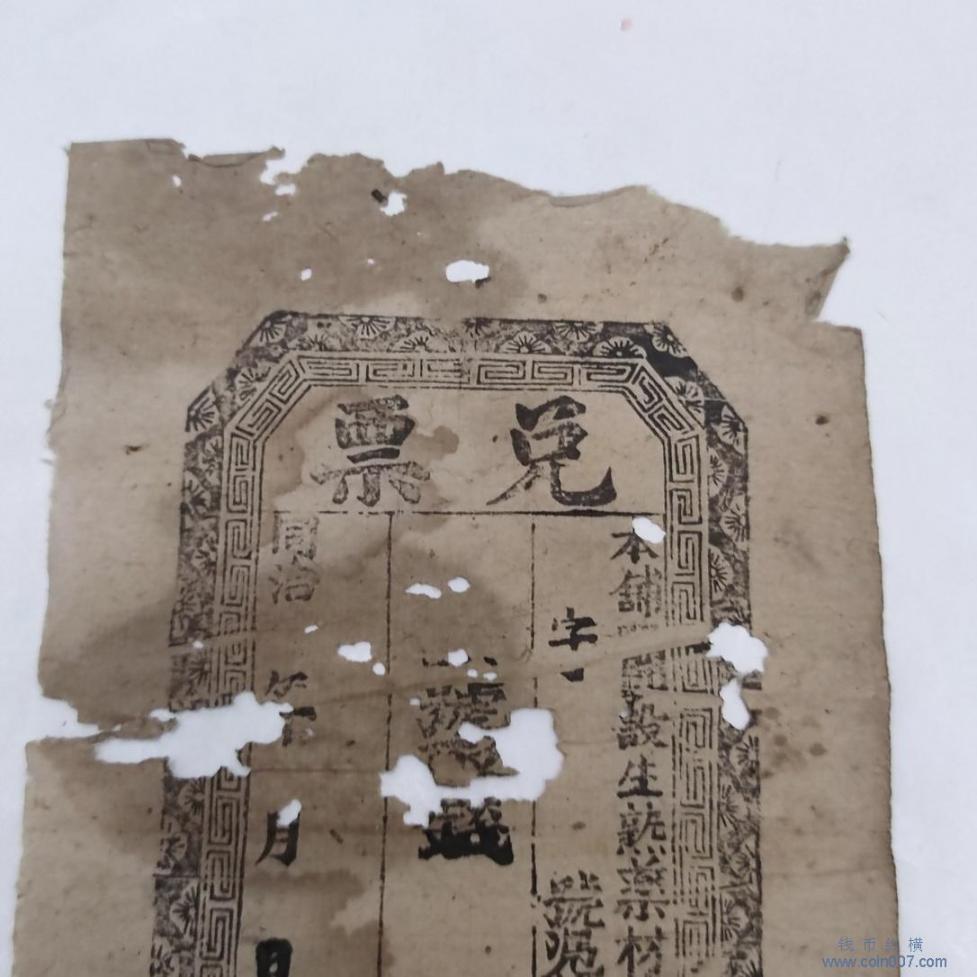 兑票
本舖開設生熟藥材
字
號兑
錢
同治 年 月 日
钱币纵横
www.coin007.com